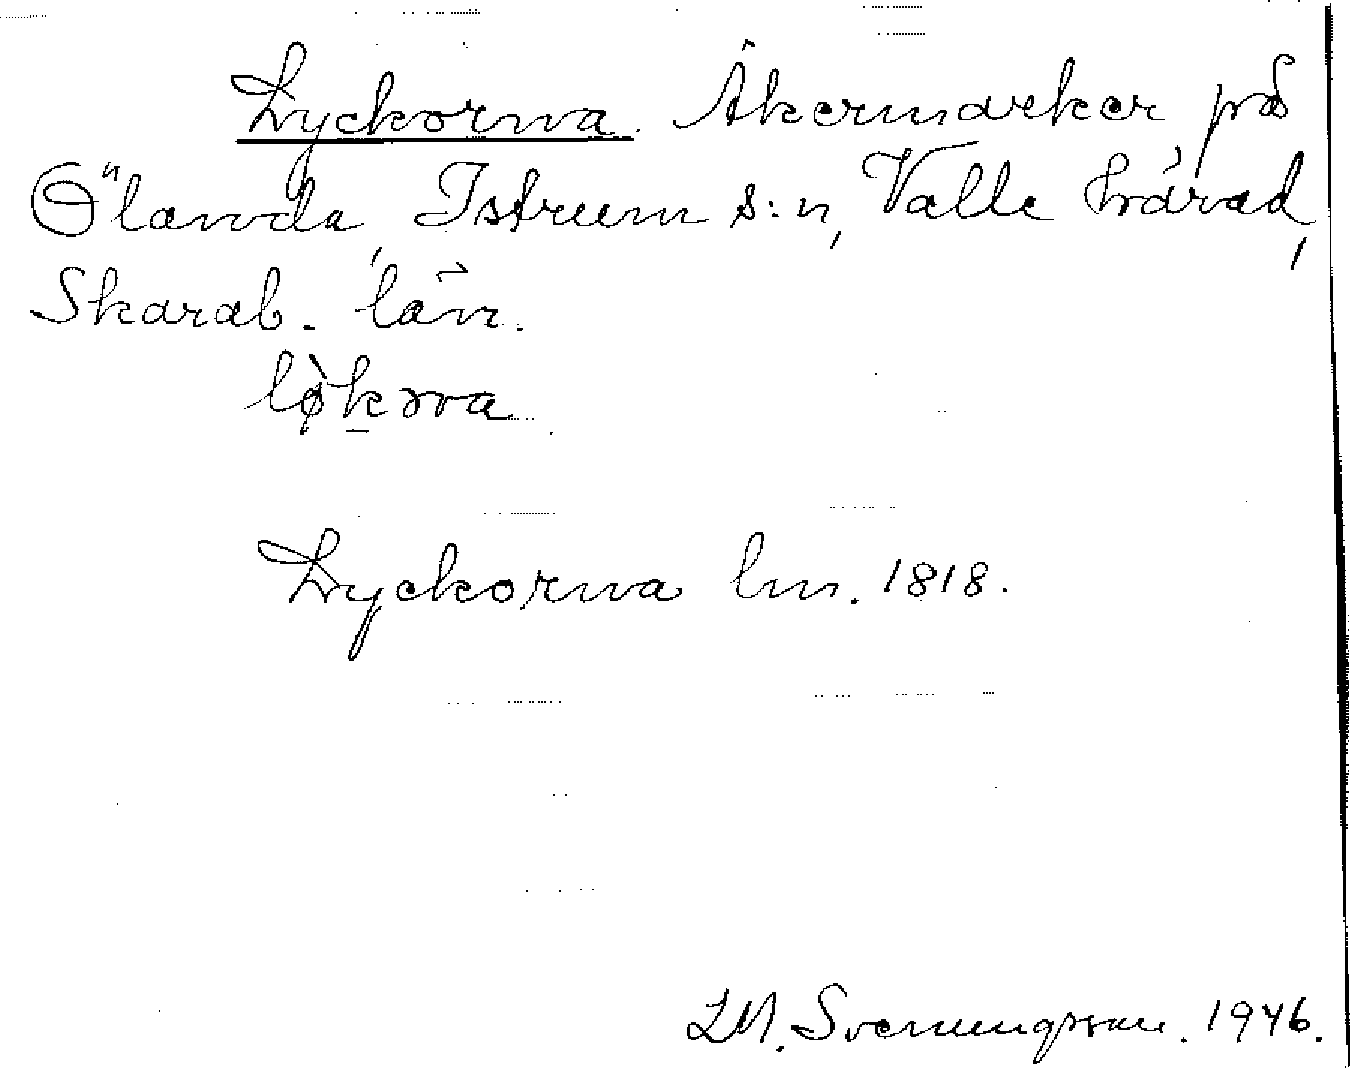 Lyckorna. Åkermarker på
Ölanda, Istrum s:n, Valle härad,
Skarab. län.
Lyckorna lm. 1818.
LM. Svenungsson. 1946.